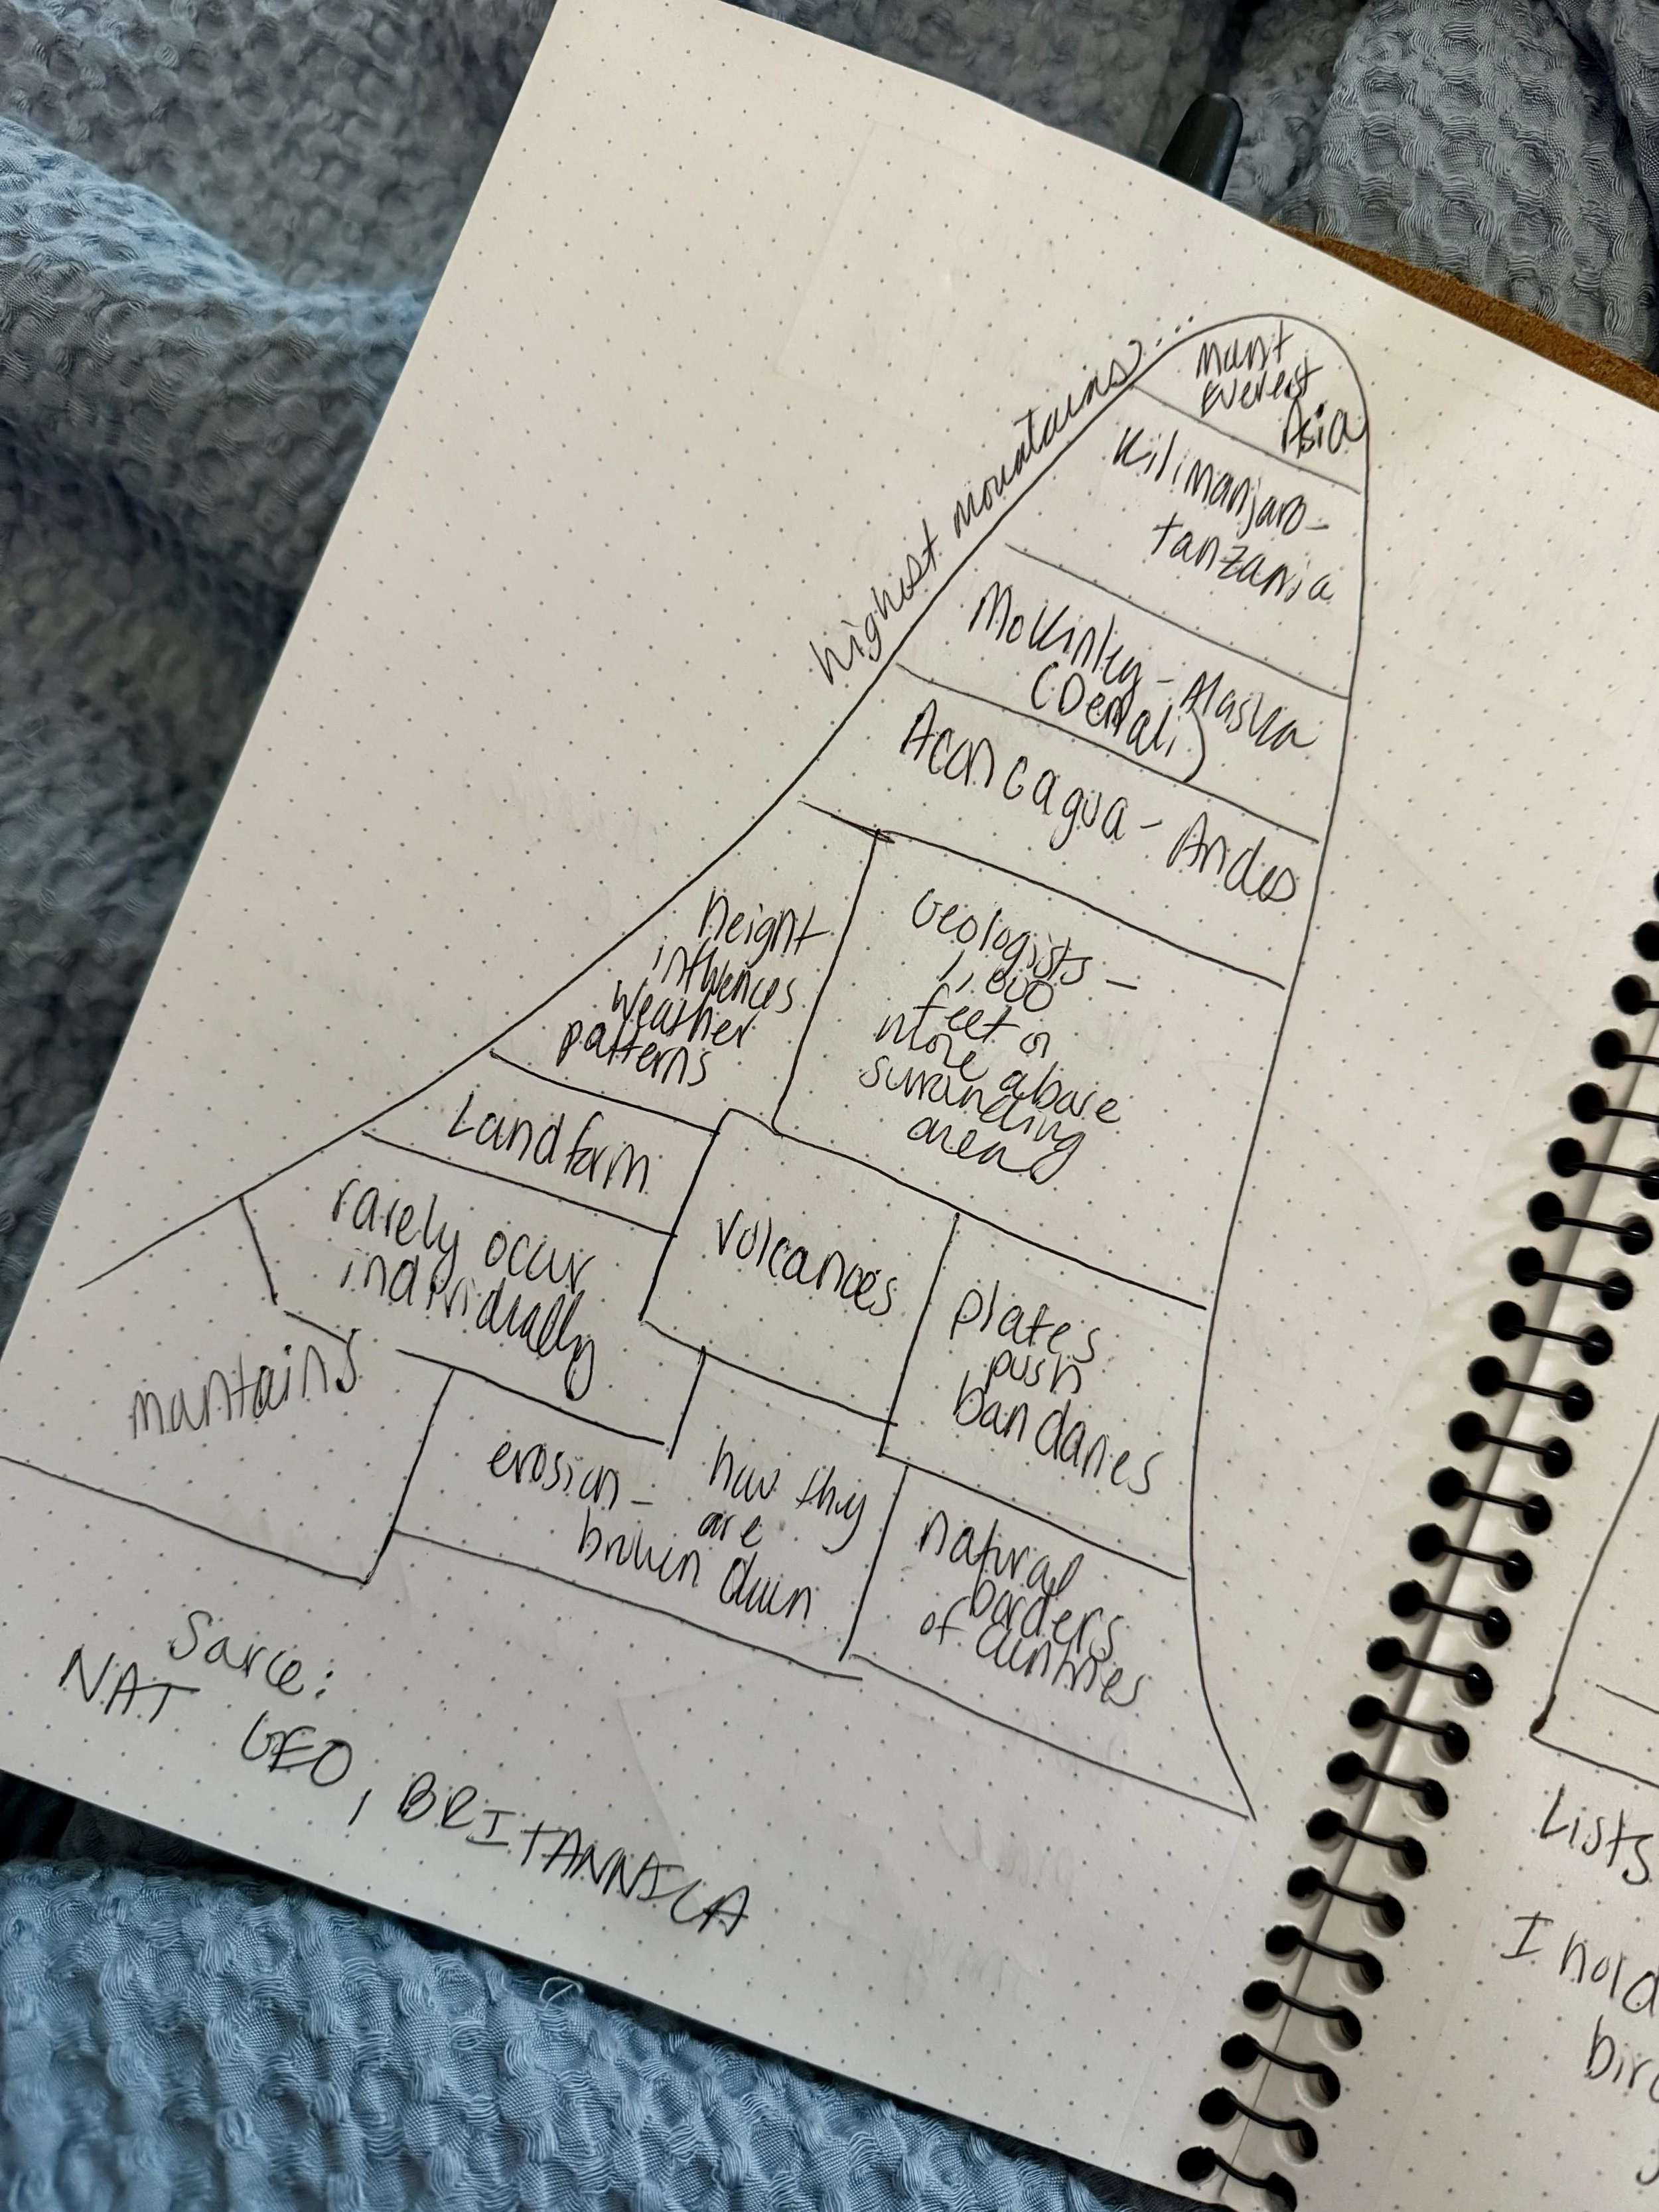 highest mountains...
Mount
Everest
Asia
Kilimanjaro-
tanzania
McKinley - Alaska
(Denali)
Aconcagua - Andes
height
influences
weather
patterns
Geologists -
1,000
feet or
more above
surrounding
area
Landform
rarely occur
individually
Volcanoes
plates
push
boundaries
mountains
erosion - how they
are
broken down
natural
borders
of countries
Source:
NAT GEO, BRITANNICA
Lists
I hold